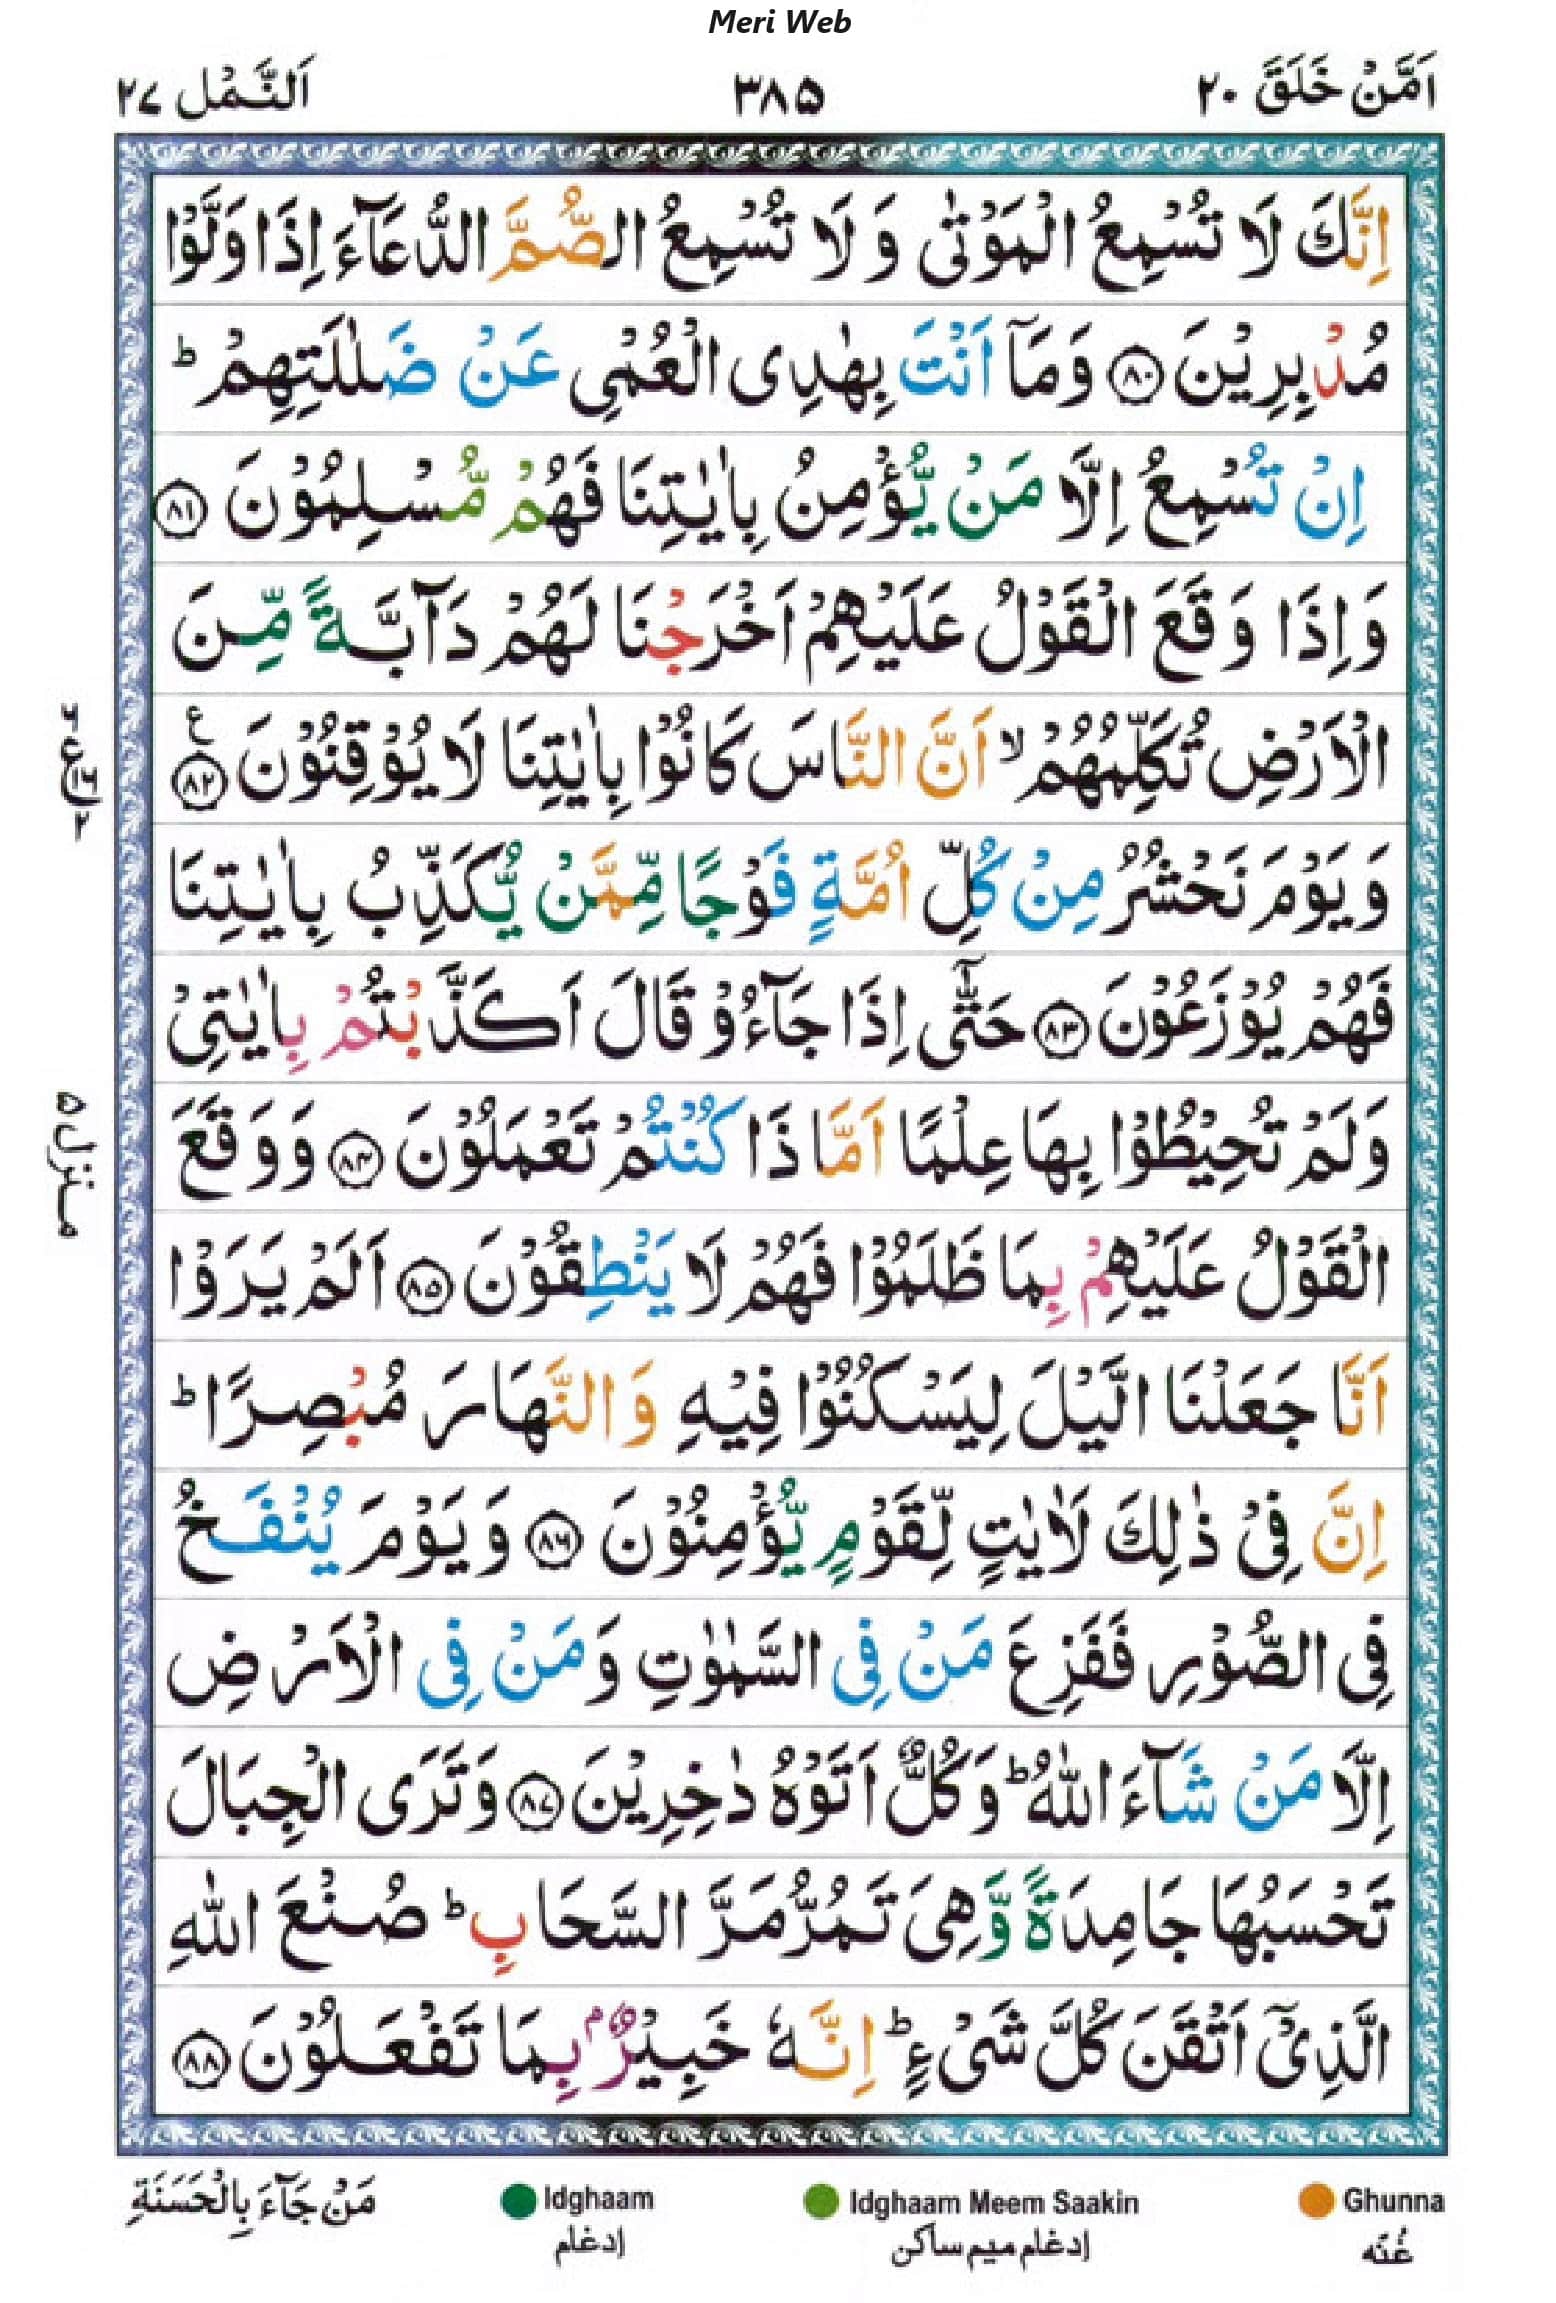 Meri Web
اَمَّنْ خَلَقَ ٢٠
٣٨٥
اَلنَّمْل ٢٧
اِنَّكَ لَا تُسْمِعُ الْمَوْتٰى وَ لَا تُسْمِعُ الصُّمَّ الدُّعَآءَ اِذَا وَلَّوْا
مُدْبِرِيْنَ ٨٠ وَمَآ اَنْتَ بِهٰدِى الْعُمْىِ عَنْ ضَلٰلَتِهِمْ ؕ
اِنْ تُسْمِعُ اِلَّا مَنْ يُّؤْمِنُ بِاٰيٰتِنَا فَهُمْ مُّسْلِمُوْنَ ٨١
وَاِذَا وَقَعَ الْقَوْلُ عَلَيْهِمْ اَخْرَجْنَا لَهُمْ دَآبَّةً مِّنَ
الْاَرْضِ تُكَلِّمُهُمْ ۙ اَنَّ النَّاسَ كَانُوْا بِاٰيٰتِنَا لَا يُوْقِنُوْنَ ٨٢
ع
٢
وَيَوْمَ نَحْشُرُ مِنْ كُلِّ اُمَّةٍ فَوْجًا مِّمَّنْ يُّكَذِّبُ بِاٰيٰتِنَا
فَهُمْ يُوْزَعُوْنَ ٨٣ حَتّٰٓى اِذَا جَآءُوْ قَالَ اَكَذَّبْتُمْ بِاٰيٰتِىْ
منزل ٥
وَلَمْ تُحِيْطُوْا بِهَا عِلْمًا اَمَّا ذَا كُنْتُمْ تَعْمَلُوْنَ ٨٤ وَوَقَعَ
الْقَوْلُ عَلَيْهِمْ بِمَا ظَلَمُوْا فَهُمْ لَا يَنْطِقُوْنَ ٨٥ اَلَمْ يَرَوْا
اَنَّا جَعَلْنَا الَّيْلَ لِيَسْكُنُوْا فِيْهِ وَالنَّهَارَ مُبْصِرًا ؕ
اِنَّ فِىْ ذٰلِكَ لَاٰيٰتٍ لِّقَوْمٍ يُّؤْمِنُوْنَ ٨٦ وَيَوْمَ يُنْفَخُ
فِى الصُّوْرِ فَفَزِعَ مَنْ فِى السَّمٰوٰتِ وَمَنْ فِى الْاَرْضِ
اِلَّا مَنْ شَآءَ اللّٰهُ ؕ وَكُلٌّ اَتَوْهُ دٰخِرِيْنَ ٨٧ وَتَرَى الْجِبَالَ
تَحْسَبُهَا جَامِدَةً وَّهِىَ تَمُرُّ مَرَّ السَّحَابِ ؕ صُنْعَ اللّٰهِ
الَّذِىْٓ اَتْقَنَ كُلَّ شَىْءٍ ؕ اِنَّهٗ خَبِيْرٌۢ بِمَا تَفْعَلُوْنَ ٨٨
Ghunna
Idghaam Meem Saakin
Idghaam
مَنْ جَآءَ بِالْحَسَنَةِ
غُنّه
إدغام ميم ساكن
إدغام